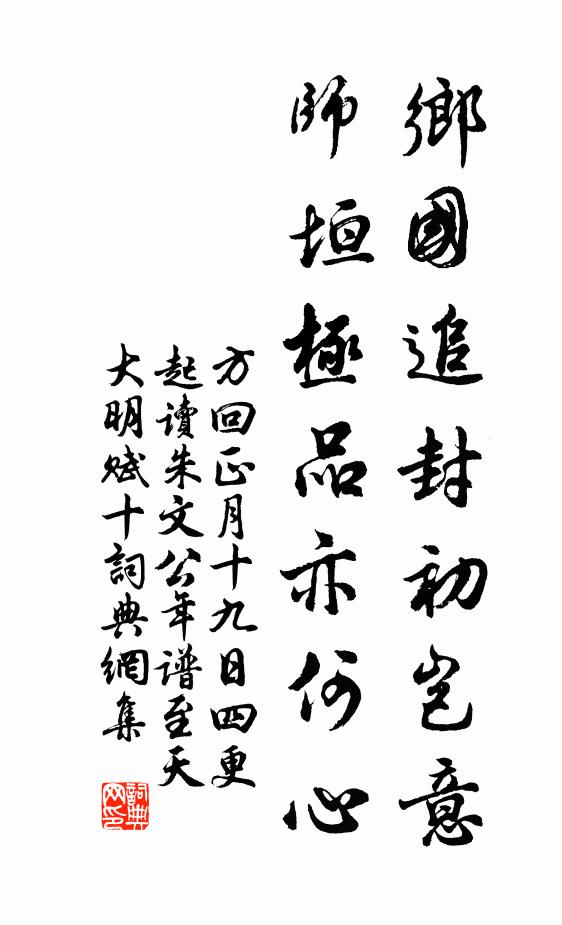 鄉國追封初豈意
師垣極品亦何心
方回正月十九日四更
起讀朱文公年谱至天
大明赋十詞典網集
詞典网印